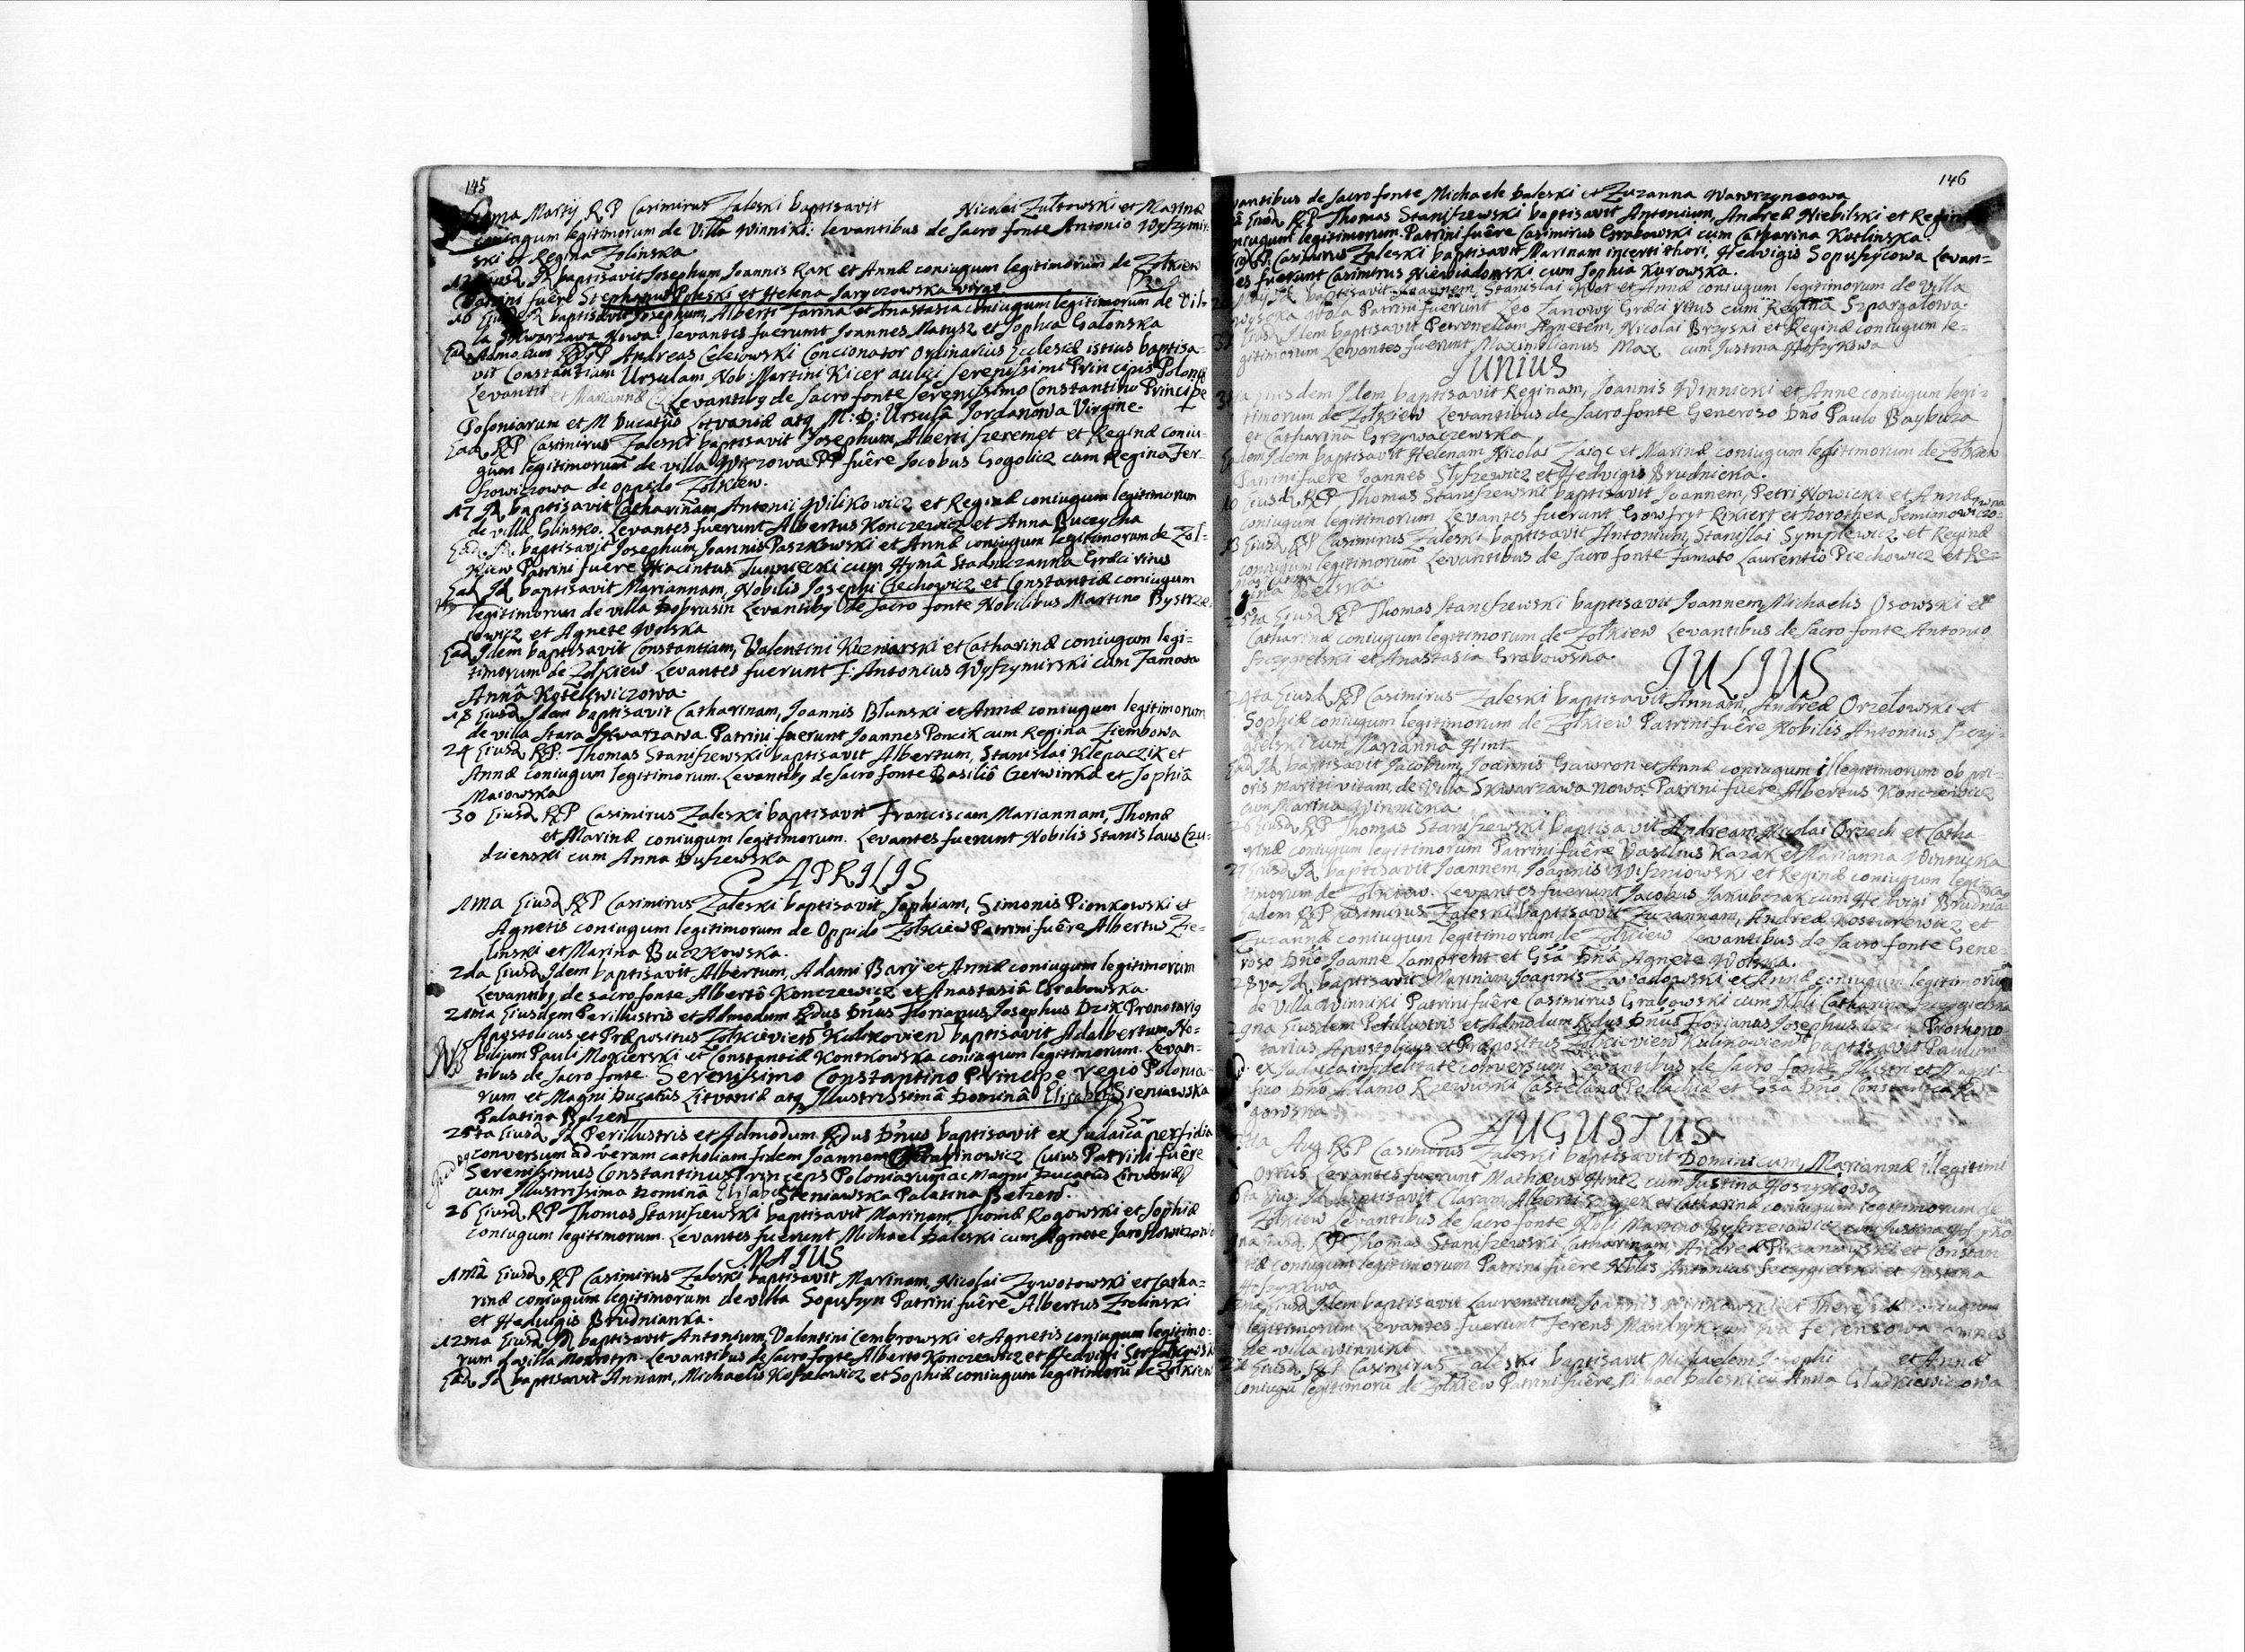 145
Martij RP Casimirus Zaleski baptisavit Nicolai Zultowski et Marinæ
coniugum legitimorum de Villa Winniki: levantibus de sacro fonte Antonio Wyszymir-
ski et Regina Zolinska
12 Eiusd Id baptisavit Josephum Joannis Rak et Annæ coniugum legitimorum de Zołkiew
Patrini fuêre Stephanus Pleski et Helena Jaryczowska virgo
16 Eiusd Id baptisavit Josephum, Alberti Farina et Anastasia coniugum legitimorum de Vil-
la Skwarzawa Nowa. levantes fuerunt Joannes Matysz et Sophia Galonska
Ead Admodum RP Andreas Celeiowski Concionator Ordinarius Ecclesiæ istius baptisa-
vit Constantiam Ursulam, Nob: Martini Kicer aulici Serenissimi Principis Polonia
et Mariannæ Levantiby de sacro fonte Serenissimo Constantino Principe
Poloniarum et M Ducatus Litvaniæ atq M: D: Ursulâ Jordanowa Virgine.
Ead RP Casimirus Zaleski baptisavit Josephum Alberti Szeremet et Reginæ coniu-
gum legitimorum de villa Wiezowa PP fuêre Jacobus Gogolicz cum Regina Fer-
szowiczowa de oppido Zołkiew.
17 Id baptisavit Catharinam Antonii Wilikowicz et Reginæ coniugum legitimorum
de villa Glinsko. Levantes fuerunt Albertus Konczewicz et Anna Buceycha
Ead Id baptisavit Josephum, Joannis Paszkowski et Annæ coniugum legitimorum de Zoł-
kiew Patrini fuêre Hiacintus Juwnecki cum Hymâ Stadniczanka Græci ritus
Ead Id baptisavit Mariannam, Nobilis Josephi Ciechowicz et Constantiæ coniugum
legitimorum de villa Dobrusin Levantiby de sacro fonte Nobilibus Martino Bystrze-
iowicz et Agnete Wolska
Ead Idem baptisavit Constantiam, Valentini Kuzniarski et Catharinæ coniugum legi-
timorum de Zołkiew Levantes fuerunt F: Antonius Wyszymirski cum Famata
Annâ Kotelewiczowa.
18 Eiusd Idem baptisavit Catharinam, Joannis Blunski et Annæ coniugum legitimorum
de villa Stara Skwarzawa Patrini fuerunt Joannes Poncik cum Regina Ziembowa
24 Eiusd RP: Thomas Staniszewski baptisavit Albertum, Stanislai Klepaczik et
Annæ coniugum legitimorum. Levantiby de sacro fonte Basiliô Czerwinka et Sophiâ
Maiowska
30 Eiusd RP Casimirus Zaleski baptisavit Franciscam Mariannam, Thomæ
et Marinæ coniugum legitimorum. Levantes fuerunt Nobilis Stanislaus Czu-
dzienski cum Anna Duszewska
APRILIS
1ma Eiusd RP Casimirus Zaleski baptisavit Sophiam, Simonis Pionkowski et
Agnetis coniugum legitimorum de Oppido Zołkiew Patrini fuêre Albertus Zie-
linski et Marina Buczkowska.
2da Eiusd Idem baptisavit Albertum, Adami Bary et Annæ coniugum legitimorum
Levantiby de sacro fonte Albertô Konczewicz et Anastasiâ Grabowska.
21ma Eiusdem Perillustris et Admodum Rdus Dnus Florianus Josephus Dzik Pronotarig
Apostolicus et Præpositus Zolkievien Kulikovien baptisavit Adalbertum No-
NB bilium Pauli Mokierski et Constantiæ Kontkowska coniugum legitimorum. Levan-
tibus de sacro fonte Serenissimo Constantino Principe Regio Polonia-
rum et Magni Ducatus Litvaniæ atq Illustrissimâ Dominâ Elisabeth Sieniawska
Palatina Belzen
25ta Eiusd Id Perillustris et Admodum Rdus Dnus baptisavit ex Judaica perfidia
conversum ad veram catholicam fidem Joannem Cuius Patrini fuêre
Serenissimus Constantinus Princeps Poloniarum ac Magni Ducatus Litvaniæ
cum Illustrissima Dominâ Elisabeth Sieniawska Palatina Belzen.
26 Eiusd RP Thomas Staniszewski baptisavit Marinam, Thomæ Rogowski et Sophiæ
coniugum legitimorum. Levantes fuerunt Michael Daleski cum Agnete Jaroslowiczowa
MAIUS
1mâ Eiusd RP Casimirus Zaleski baptisavit Marinam, Nicolai Zywotowski et Catha-
rinæ coniugum legitimorum de villa Sopuszyn Patrini fuêre Albertus Zielinski
et Hedvigis Brudnianka.
12ma Eiusd Id baptisavit Antonium, Valentini Cembrowski et Agnetis coniugum legitimo-
rum de villa Mokrotyn. Levantibus de sacro fonte Alberto Konczewicz et Hedvigi
Ead Id baptisavit Annam, Michaelis Koszelowicz et Sophiæ coniugum legitimorū de Zołkiew
146
vantibus de sacro fonte Michaele Daleski et Zuzanna Wawrzyncowa
Eiusd RP Thomas Staniszewski baptisavit Antonium, Andreæ Niebilski et Reginæ
coniugum legitimorum. Patrini fuêre Casimirus Grabowski cum Catharina Kotlinska.
Casimirus Zaleski baptisavit Marinam incerti thori, Hedvigis Sopuszycowa Levan-
tes fuerunt Casimirus Niewiadomski cum Sophia Kurowska.
baptisavit Joannem, Stanislai Kier et Annæ coniugum legitimorum de villa
Wysocka Wola Patrini fuerunt Leo Zanowy Græci ritus cum Reginâ Szpargałowa.
Eiusd Idem baptisavit Petronellam Agnetem, Nicolai Brzyski et Reginæ coniugum le-
gitimorum Levantes fuerunt Maximilianus Max cum Justina Hoszykowa
IUNIUS
3tia eiusdem Idem baptisavit Reginam, Joannis Winnicki et Annæ coniugum legi-
timorum de Zołkiew Levantibus de sacro fonte Generoso Dno Paulo Baybuza
et Catharina Grzywaczewska
Eadem Idem baptisavit Helenam Nicolai Zaiąc et Marinæ coniugum legitimorum de Zołkiew
Patrini fuere Joannes Słyszewicz et Hedvigis Brudnicka.
10 Eiusd RP Thomas Staniszewski baptisavit Joannem, Petri Nowicki et Annæ
coniugum legitimorum Levantes fuerunt Gowfryt Rikiert et Dorothea Semionowiczo-
wna
13 Eiusd RP Casimirus Zaleski baptisavit Antonium, Stanislai Symplewicz et Reginæ
coniugum legitimorum Levantibus de sacro fonte Famato Laurentio Piechowicz et Re-
gina Belska
Eiusd RP Thomas Staniszewski baptisavit Joannem Michaelis Osowski et
Catharinæ coniugum legitimorum de Zołkiew Levantibus de sacro fonte Antonio
Szczygielski et Anastasia Grabowska.
IULIUS
24ta Eiusd RP Casimirus Zaleski baptisavit Annam, Andreæ Orzełowski et
Sophiæ coniugum legitimorum de Zołkiew Patrini fuêre Nobilis Antonius Szczy-
gielski cum Marianna Hint
Ead Id baptisavit Jacobum, Joannis Gawron et Annæ coniugum illegitimorum ob pri-
oris mariti vitam, de Villa Skwarzawa nowa. Patrini fuêre Albertus Konczewicz
cum Marina Winnicka
26 Eiusd RP Thomas Staniszewski baptisavit Andream Nicolai Orzech et Catha-
rinæ coniugum legitimorum Patrini fuêre Vasilius Kazak et Marianna Winnicka
27 Eiusd Id baptisavit Joannem, Joannis Wiszniowski et Reginæ coniugum legi-
timorum de Zołkiew. Levantes fuerunt Jacobus Janubczak cum Hedvigi Brudnia-
Eadem RP Casimirus Zaleski baptisavit Zuzannam, Andreæ Kosturewicz et
Zuzannæ coniugum legitimorum de Zołkiew Levantibus de sacro fonte Gene-
roso Dno Joanne Lamprent et Gsa Dna Agnete Wolska.
28va Id baptisavit Marinam Joannis Zawadowski et Annæ coniugum legitimorum
de Villa Winniki Patrini fuêre Casimirus Grabowski cum Nbli Catharina Szczygielska
29na Eiusdem Perillustris et Admodum Rdus Dnus Florianus Josephus Dzik Prothono-
tarius Apostolicus et Præpositus Zolkievien Kulikovien baptisavit Paulum
ex Judaica infidelitate conversum Levantibus de sacro fonte Illustri et Magni-
fico Dno Adamo Rzewuski Castellano Podlachiæ et Gsa Dna Constantia
AUGUSTUS
Aug RP Casimirus Zaleski baptisavit Dominicum, Mariannæ illegitimi
Ortus Levantes fuerunt Mathæus Hintz cum Justina Hoszykowa
6ta eius. Id baptisavit Claram, Alberti et Catharinæ coniugum legitimorum de
Zołkiew Levantibus de sacro fonte Nbli Martino Bystrzeiowicz cum Justina Hoszyko
Eiusd RP Thomas Staniszewski Catharinam Andreæ et Constan-
tiæ coniugum legitimorum Patrini fuêre Nblis Antonius Szczygielski et Justina
Hoszykowa
Eiusd Idem baptisavit Laurentium, Joannis et Theresiæ coniugum
legitimorum Levantes fuerunt Ferens Mandryk cum Eva Ferensowa omnes
de villa Winniki
Eiusd RP Casimirus Zaleski baptisavit Michaelem Josephi et Annæ
Coniugū legitimorū de Zołkiew Patrini fuêre Michael Daleski cū Anna Gladkiewiczowa